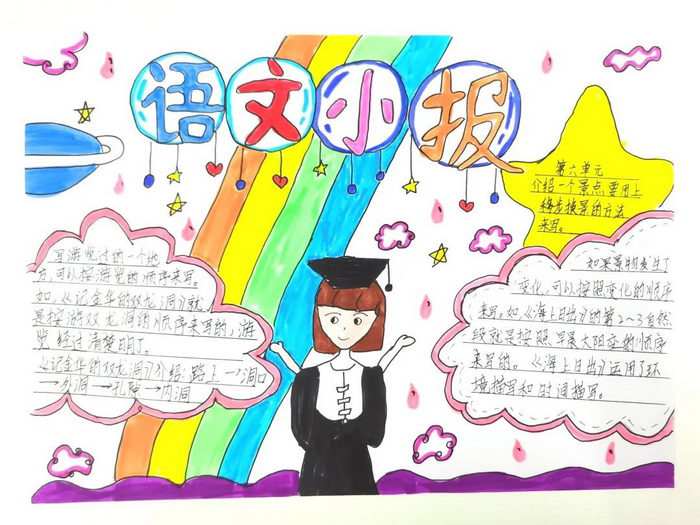 语文小报
第六单元
介绍一个景点,要用上
移步换景的方法
来写。
写游览过的一个地
方,可以按游览的顺序来写。
如,《记金华的双龙洞》就
是按游双龙洞的顺序来写的,游
览经过清楚明了。
《记金华的双龙洞》介绍:路上→洞口
→外洞→孔隙→内洞
如果景物发生了
变化,可以按照变化的顺序
来写。如《海上日出》的第2~3自然
段就是按照早晨太阳变的顺序
来写的。《海上日出》运用了环
境描写和时间描写。